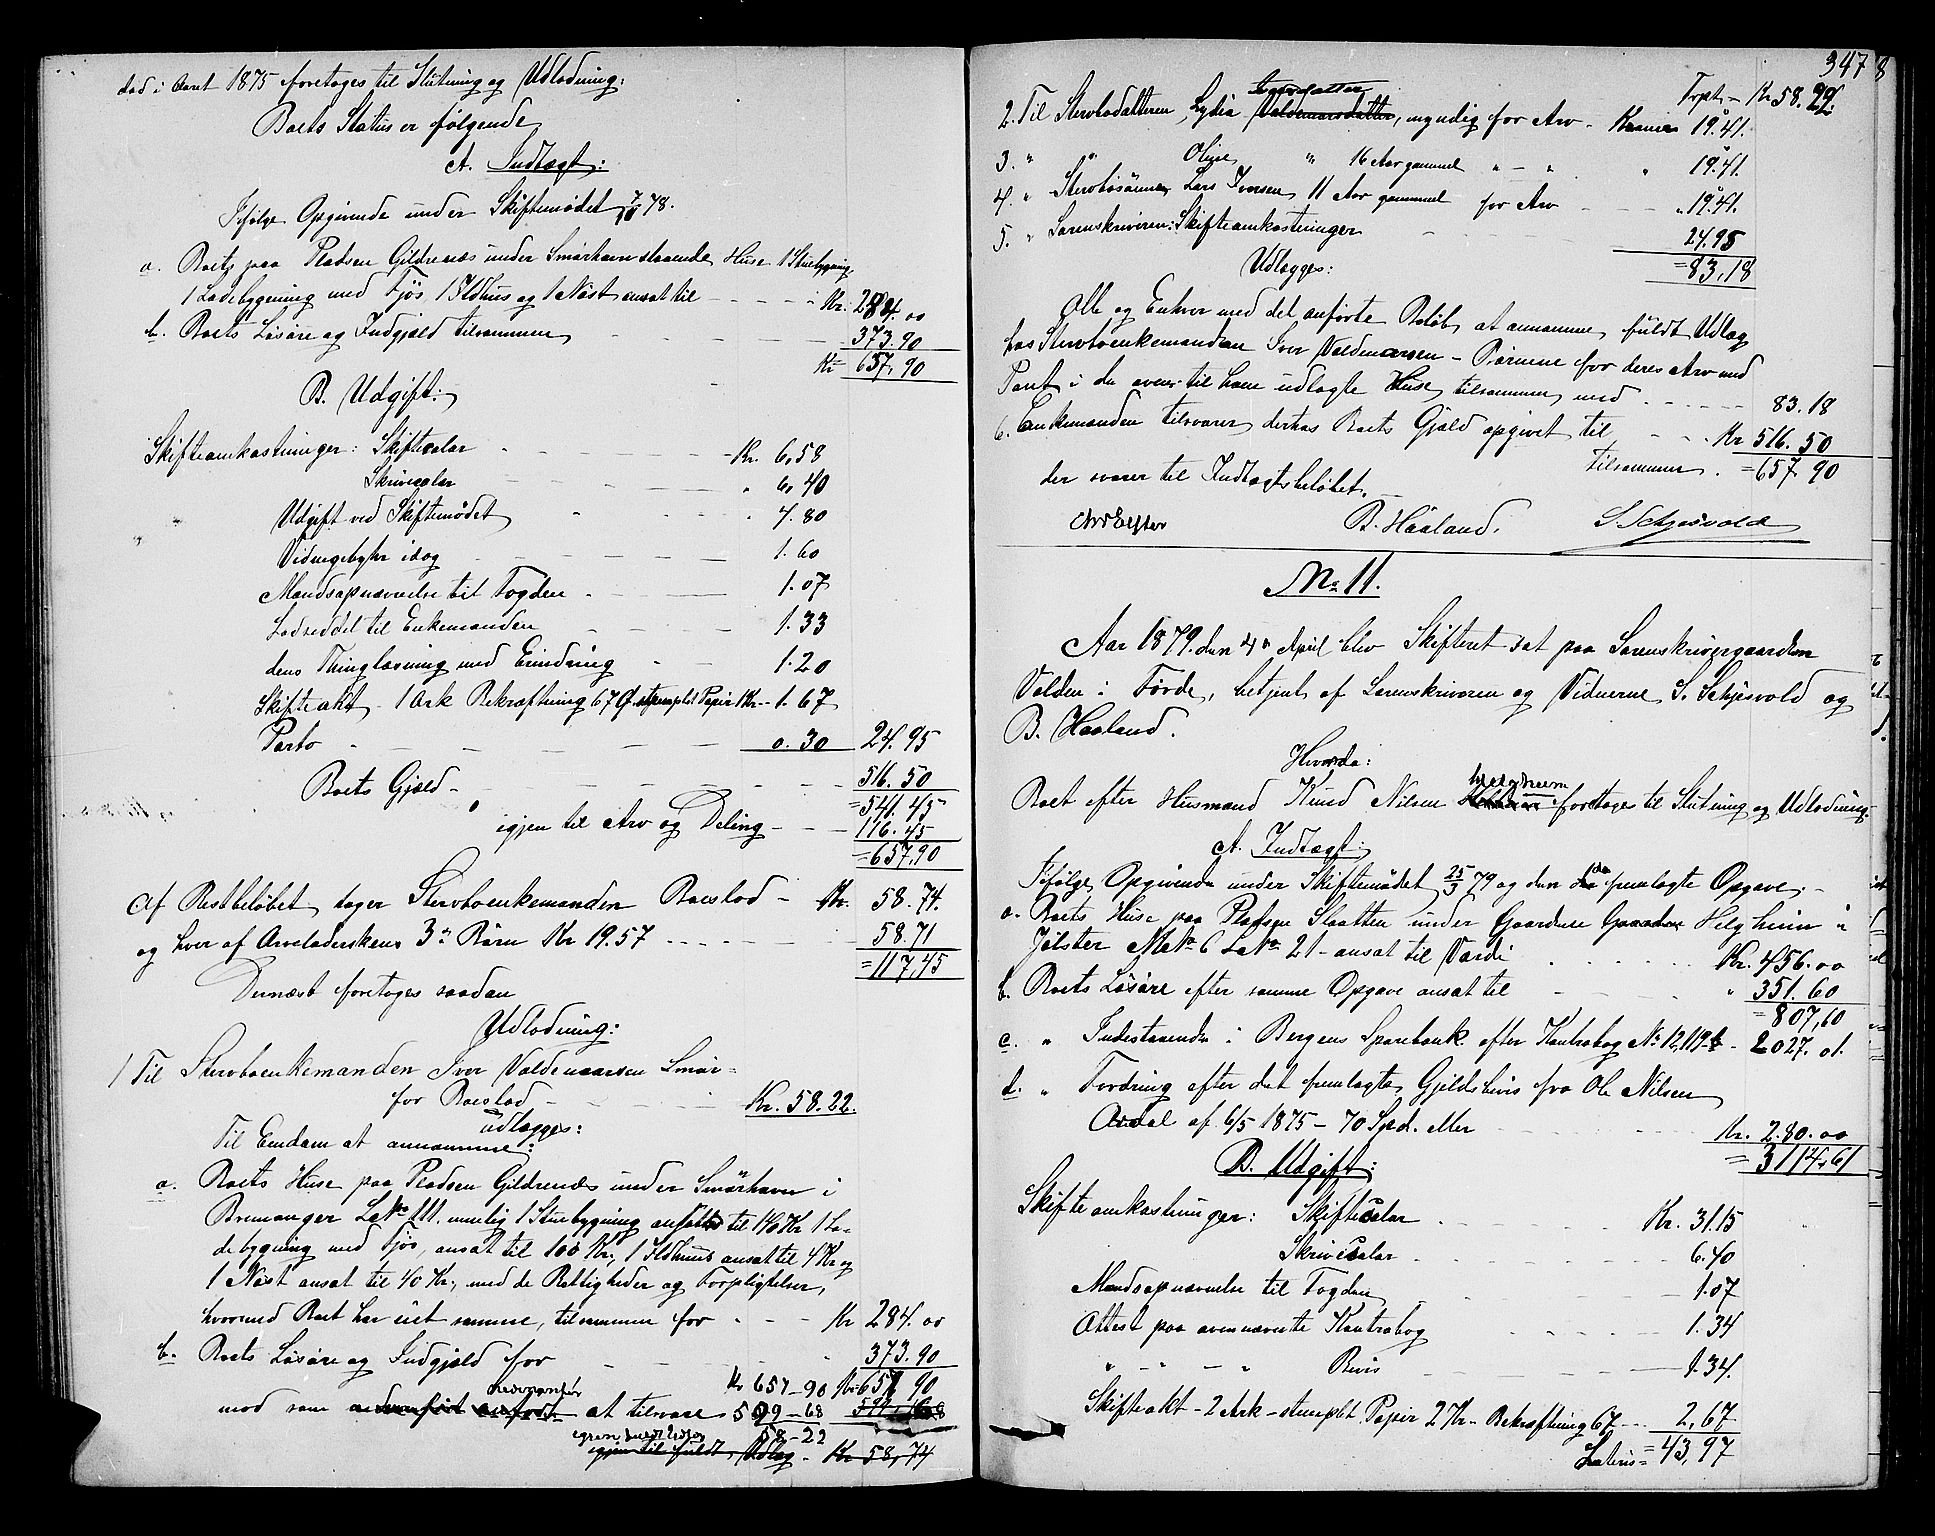 død i Aaret 1875 foretoges til Slutning og Udlodning:
Boets Status er følgende
A. Indtægt:
Ifølge Opgivende under Skiftemødet 7/10 78.
a. Boets paa Pladsen Gildrenæs under Smørhavn staaende Huse 1 Stuebygning,
1 Ladebygning med Fjøs, 1 Ildhus og 1 Nøst ansat til - - - - Kr. 284.00
b. Boets Løsøre og Indgjæld tilsammen - - - - 373.90
Kr 657,90
B. Udgift:
Skifteomkostninger: Skiftesalær - - - Kr. 6,58
Skrivesalær - - - " 6,40
Udgift ved Skiftemødet " 4.80
Vidnegebyhr idag - - - 1.60
Mandsopnævnelse til Fogden - - - 1.07
Lodseddel til Enkemanden - - - 1.33
dens Thinglæsning med Erindring - - 1.20
Skifteakt - 1 Ark Bekræftning 67 Ø. stemplet Papir 1 Kr - 1.67
Porto - - - - - 0.30 24.95
Boets Gjæld - - - - - 516.50
= 541.45
igjen til Arv og Deling - - - 116.45
= 657,90
Af Restbeløbet tager Stervboenkemanden Boeslod - Kr. 58.74.
og hver af Arveladerskens 3de Børn Kr 19.57 - - - - 58.71
= 117,45
Dernæst foretoges saadan
Udlodning:
1 Til Stervboenkemanden Iver Valdemarsen Smør=
for Boeslod - - - - Kr. 58.22.
udlægges:
Til Eiendom at annamme:
a. Boets Huse paa Pladsen Gildrenæs under Smørhavn i
Bremanger LNo 111. nemlig 1 Stuebygning ansat til 140 Kr 1 La-
debygning med Fjøs, ansat til 100 Kr, 1 Ildhuus ansat til 4 Kr og
1 Nøst ansat til 40 Kr, med de Rettigheder og Forpligtelser,
hvormed Boet har eiet samme, tilsammen for - - - Kr 284.00
b. Boets Løsøre og Indgjæld for - - - - " 373.90
Kr 657-90 Kr = 657 90
nedenanført
mod som anført at tilsvare 599-68
58-22
igjen til fuldt Udlæg - Kr 58,74
347
Trpt - Kr 58.22.
Iversdatter
2. Til Stervbodatteren, Lydia Valdemarsdatter, myndig for Arv - Kroner 19.41.
3. " " Oline " 16 Aar gammel " - " " 19.41.
4. " Stervbosønnen Lars Iversen 11 Aar gammel for Arv - - - " 19.41.
5. " Sorenskriveren: Skifteomkostninger - - - - 24.95
= 83,18
Udlægges:
Alle og Enhver med det anførte Beløb at annamme, fuldt Udlæg
hos Stervboenkemanden Iver Valdemarsen - Børnene for deres Arv med
Pant i de ovenf. til ham udlagte Huse tilsammen med - - - - - 83.18
6. Enkemanden tilsvarer derhos Boets Gjæld opgivet til - - - Kr 516.50
der svarer til Indtægtsbeløbet. Tilsammen. = 657.90
B. Haaland. S Schjesvold
No 11.
Aar 1879. den 4de April blev Skifteret sat paa Sorenskrivergaarden
Volden i Førde, betjent af Sorenskriveren og Vidnerne S. Schjesvold og
B. Haaland.
Hvorda:
Helgheim
Boet efter Husmand Knud Nilsen foretoges til Slutning og Udlodning.
A. Indtægt:
Ifølge Opgivende under Skiftemødet 25/3 79 og den da fremlagte Opgave: -
a. Boets Huse paa Pladsen Slaatten under Gaarden Helgheim i
Jølster MNo 6 LNo 21 - ansat til Værdi - - - Kr. 456.00
b. Boets Løsøre efter samme Opgave ansat til - - - " 351.60
= 807,60
c. " Indestaaende i Bergens Sparebank efter Kontrabog No 12,119 - 2027.01.
d. " Fordring efter det fremlagte Gjeldsbevis fra Ole Nilsen
Aardal af 6/5 1875 - 70 Spd. eller - - - Kr. 280.00
= 3114,61
B. Udgift:
Skifteomkostninger: Skiftesalær - - - Kr. 31.15
Skrivesalær - - - 6.40
Mandsopnævnelse til Fogden - - - 1.07
Attest paa ovennævnte Kontrabog - - - 1.34
" - " - " Bevis - - - 1.34.
Skifteakt - 2 Ark - stemplet Papir 2 Kr - Bekræftning 67 - - 2,67
Lateris = 43,97